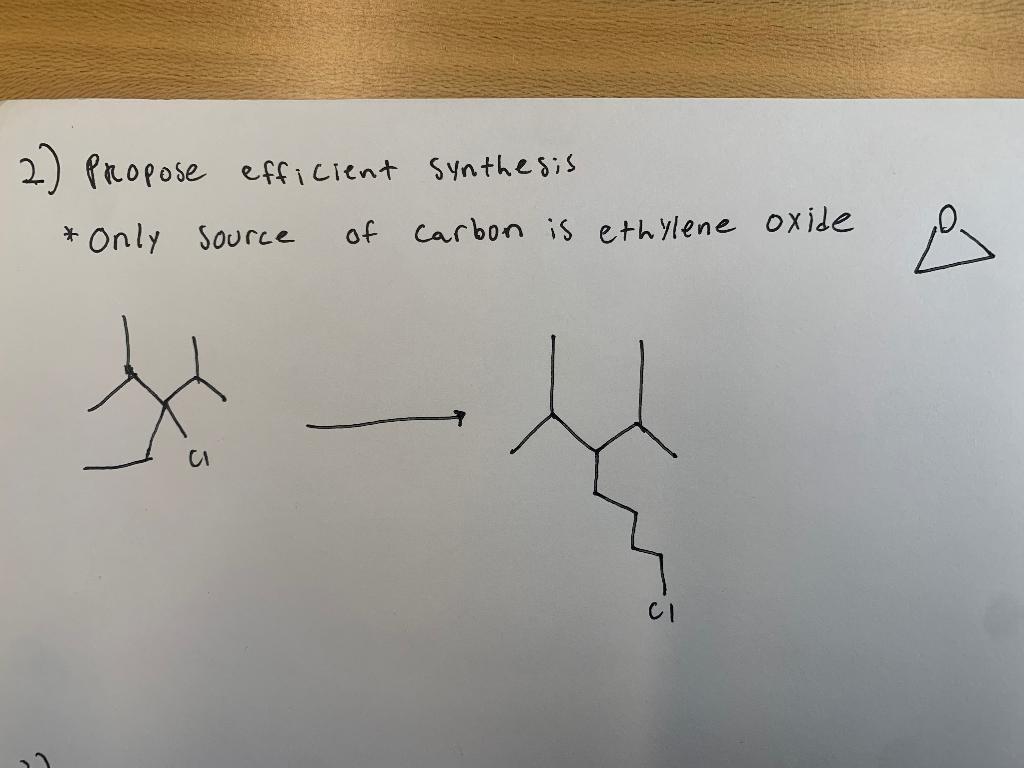 2) Propose efficient synthesis
* Only source of carbon is ethylene oxide
O
Cl
Cl